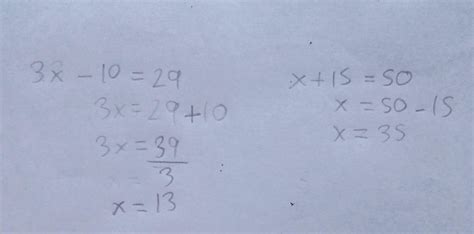 3x - 10 = 29
3x = 29 + 10
3x = 39
3
x = 13
x + 15 = 50
x = 50 - 15
x = 35